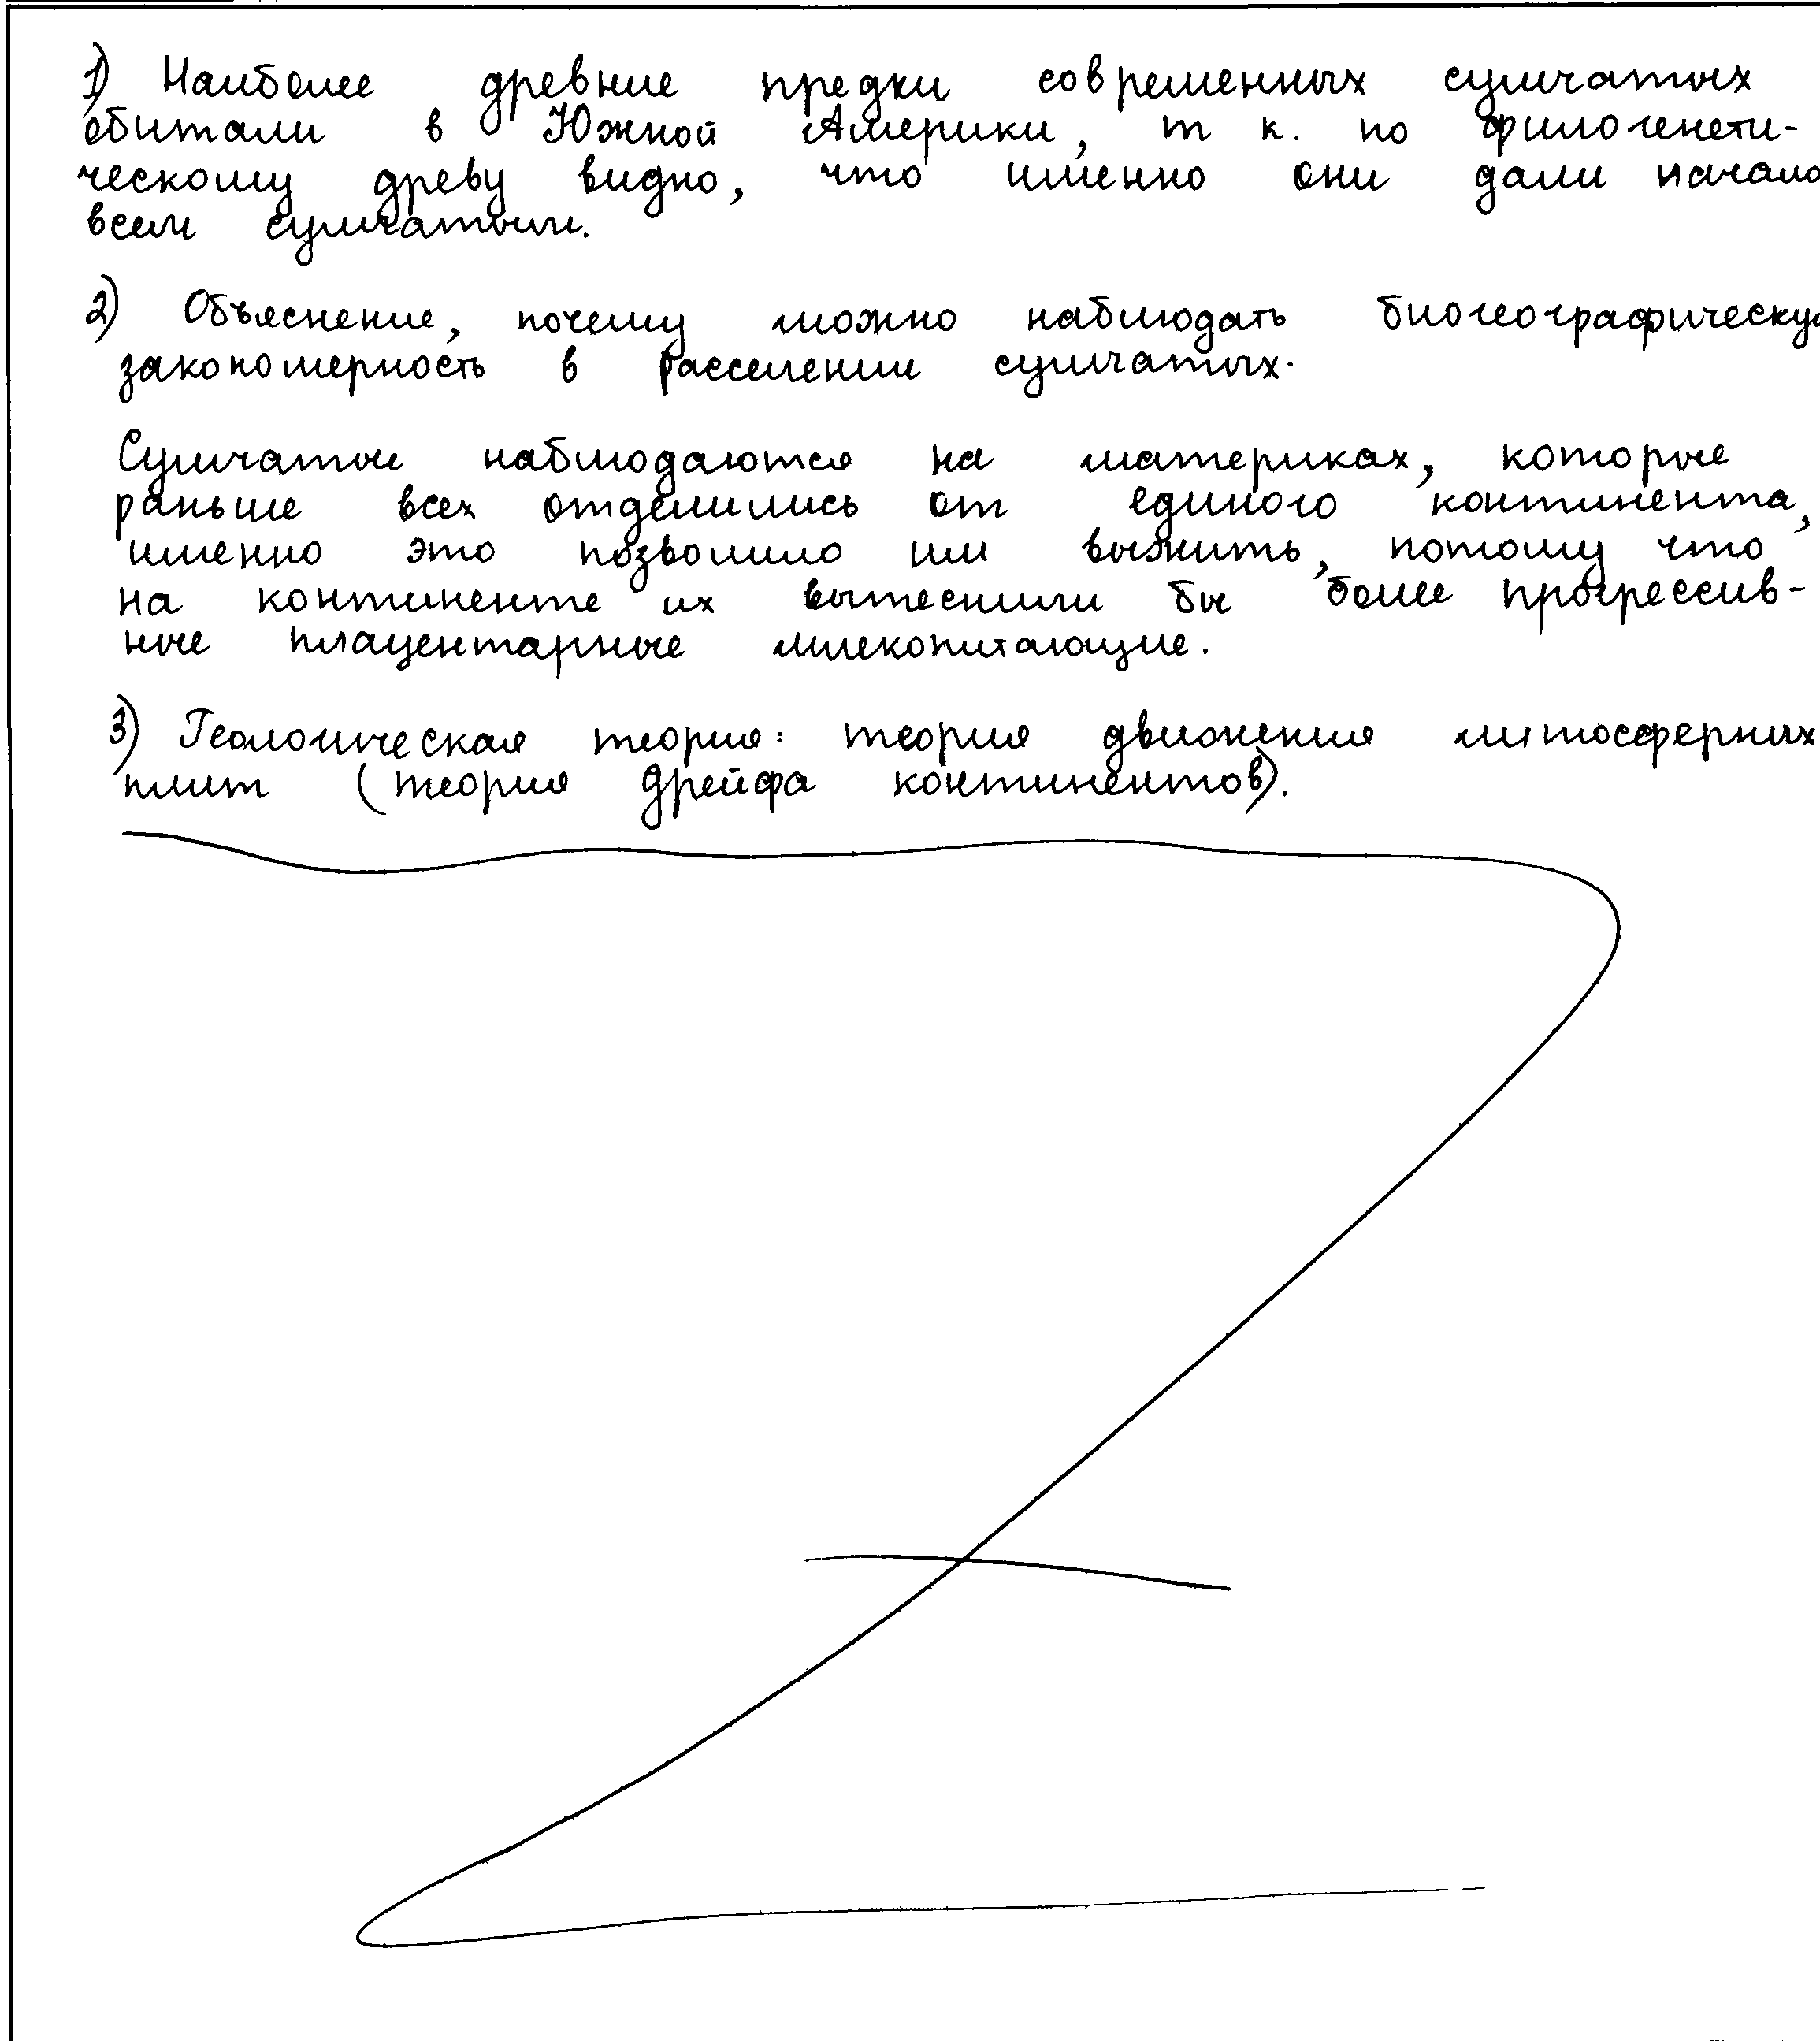 1) Наиболее древние предки современных сумчатых
обитали в Южной Америки, т к. по филогенети-
ческому древу видно, что именно они дали начало
всем сумчатым.
2) Объяснение, почему можно наблюдать биогеографическую
закономерность в расселении сумчатых.
Сумчатые наблюдаются на материках, которые
раньше всех отделились от единого континента,
именно это позволило им выжить, потому что
на континенте их вытеснили бы более прогрессив-
ные плацентарные млекопитающие.
3) Геологическая теория: теория движения литосферных
плит (теория дрейфа континентов).